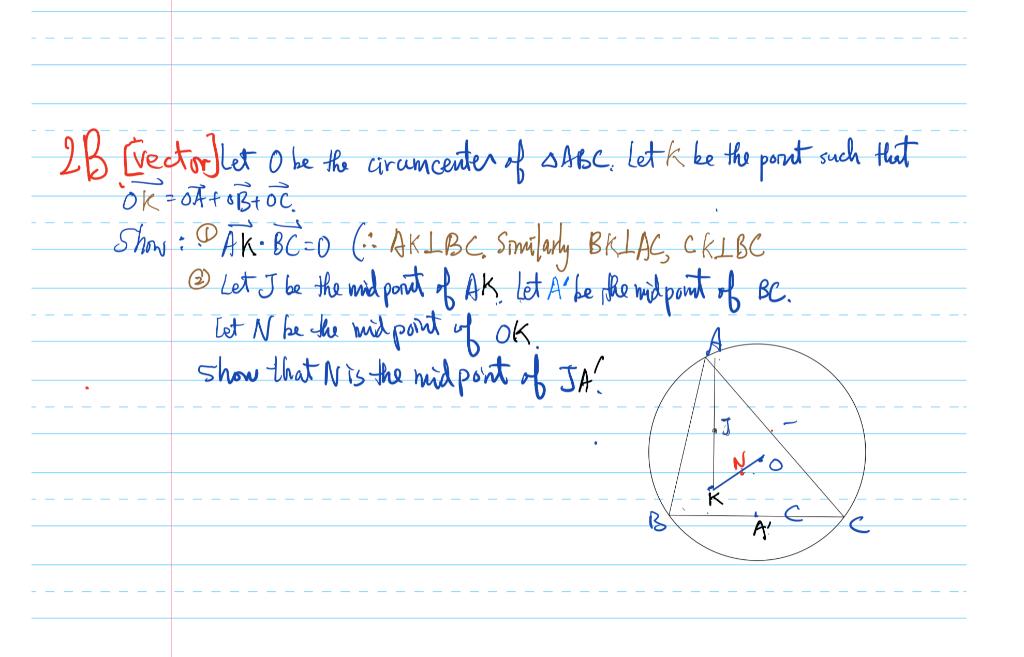 2B [vector] Let O be the circumcenter of △ABC. Let K be the point such that
OK = OA + OB + OC.
Show : ① AK · BC = 0 (∴ AK⊥BC. Similarly BK⊥AC, CK⊥BC
② Let J be the midpoint of AK. Let A' be the midpoint of BC.
Let N be the midpoint of OK.
Show that N is the midpoint of JA'.
A
J
N O
K
B A' C C